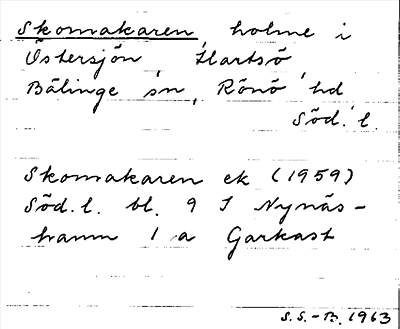 Skomakaren, holme i
Östersjön, Hartsö,
Bälinge sn, Rönö hd
Söd. l.
Skomakaren ek (1959)
Söd. l. bl. 9 I Nynäs-
hamn 1 a Garkast
S.S.-B. 1963